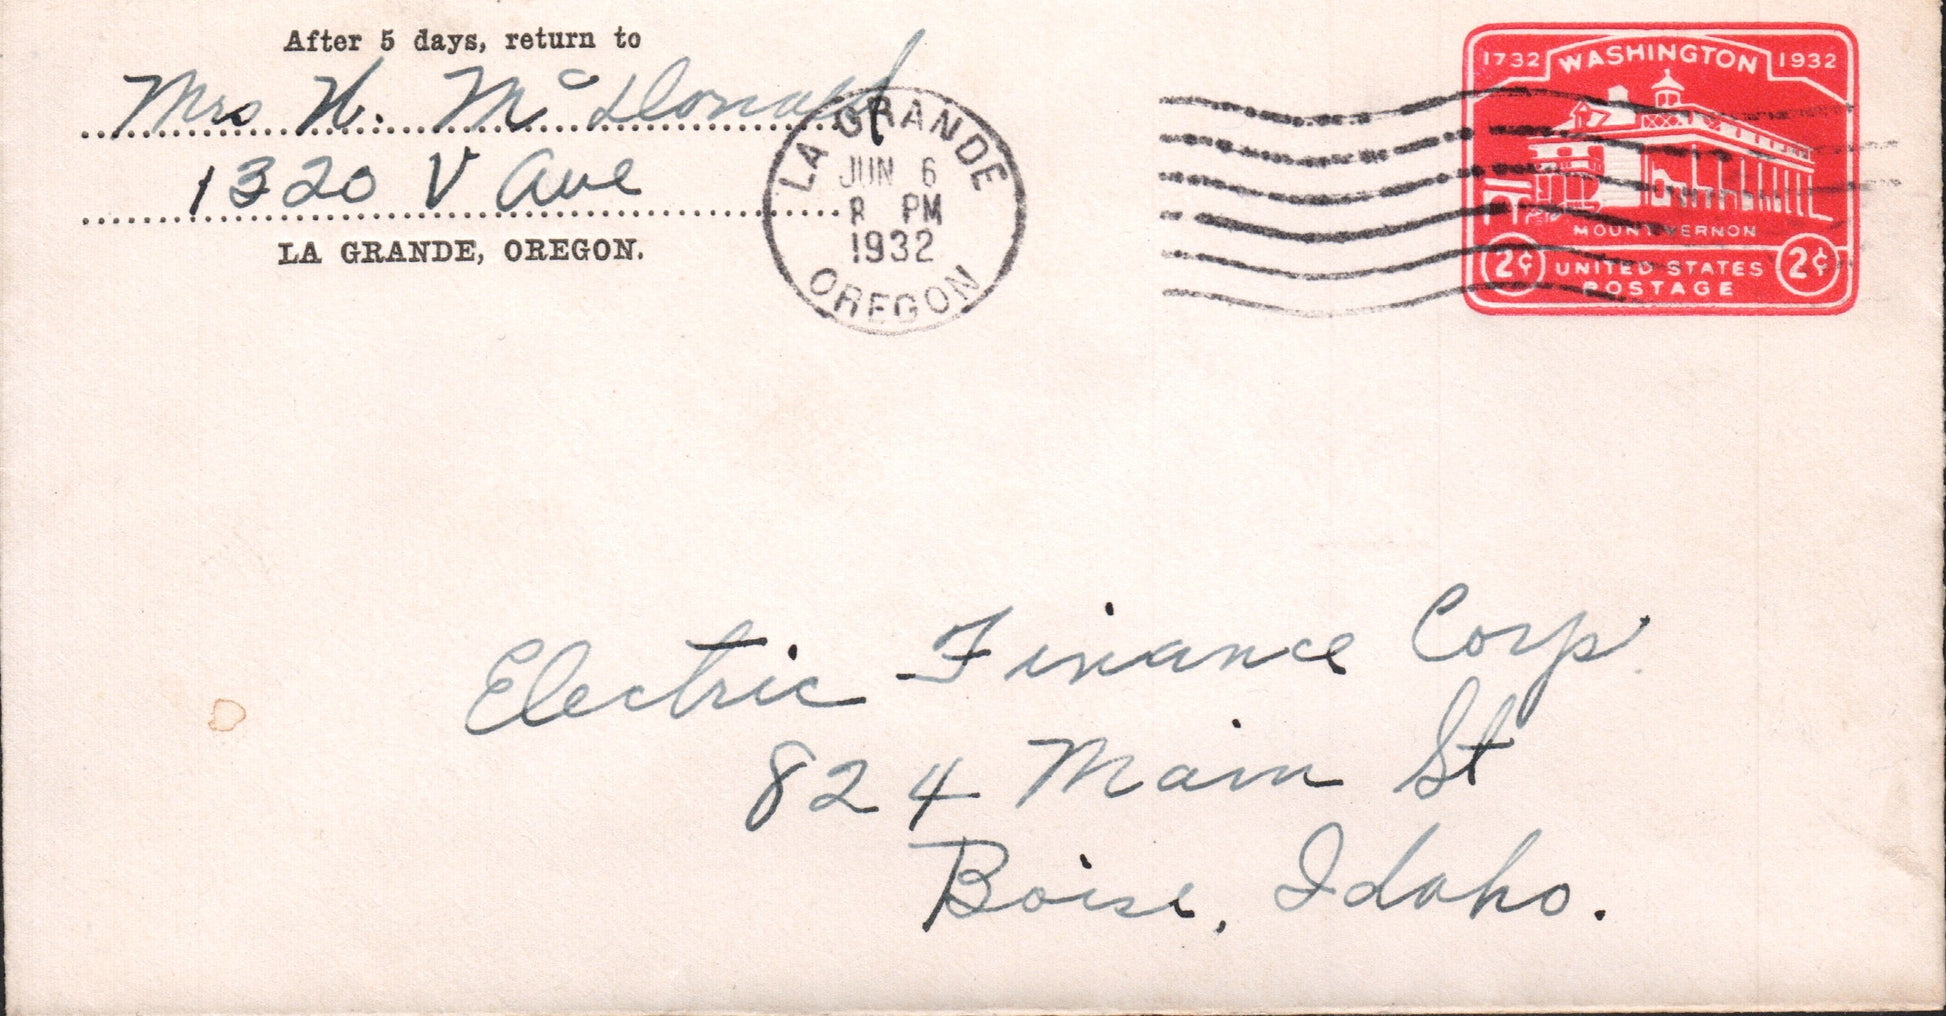 After 5 days, return to
Mrs H. Mc Donald
1320 V Ave
LA GRANDE, OREGON.
LA GRANDE
JUN 6
8 PM
1932
OREGON
1732 WASHINGTON 1932
MOUNT VERNON
2¢ UNITED STATES 2¢
POSTAGE
Electric Finance Corp.
824 Main St
Boise, Idaho.